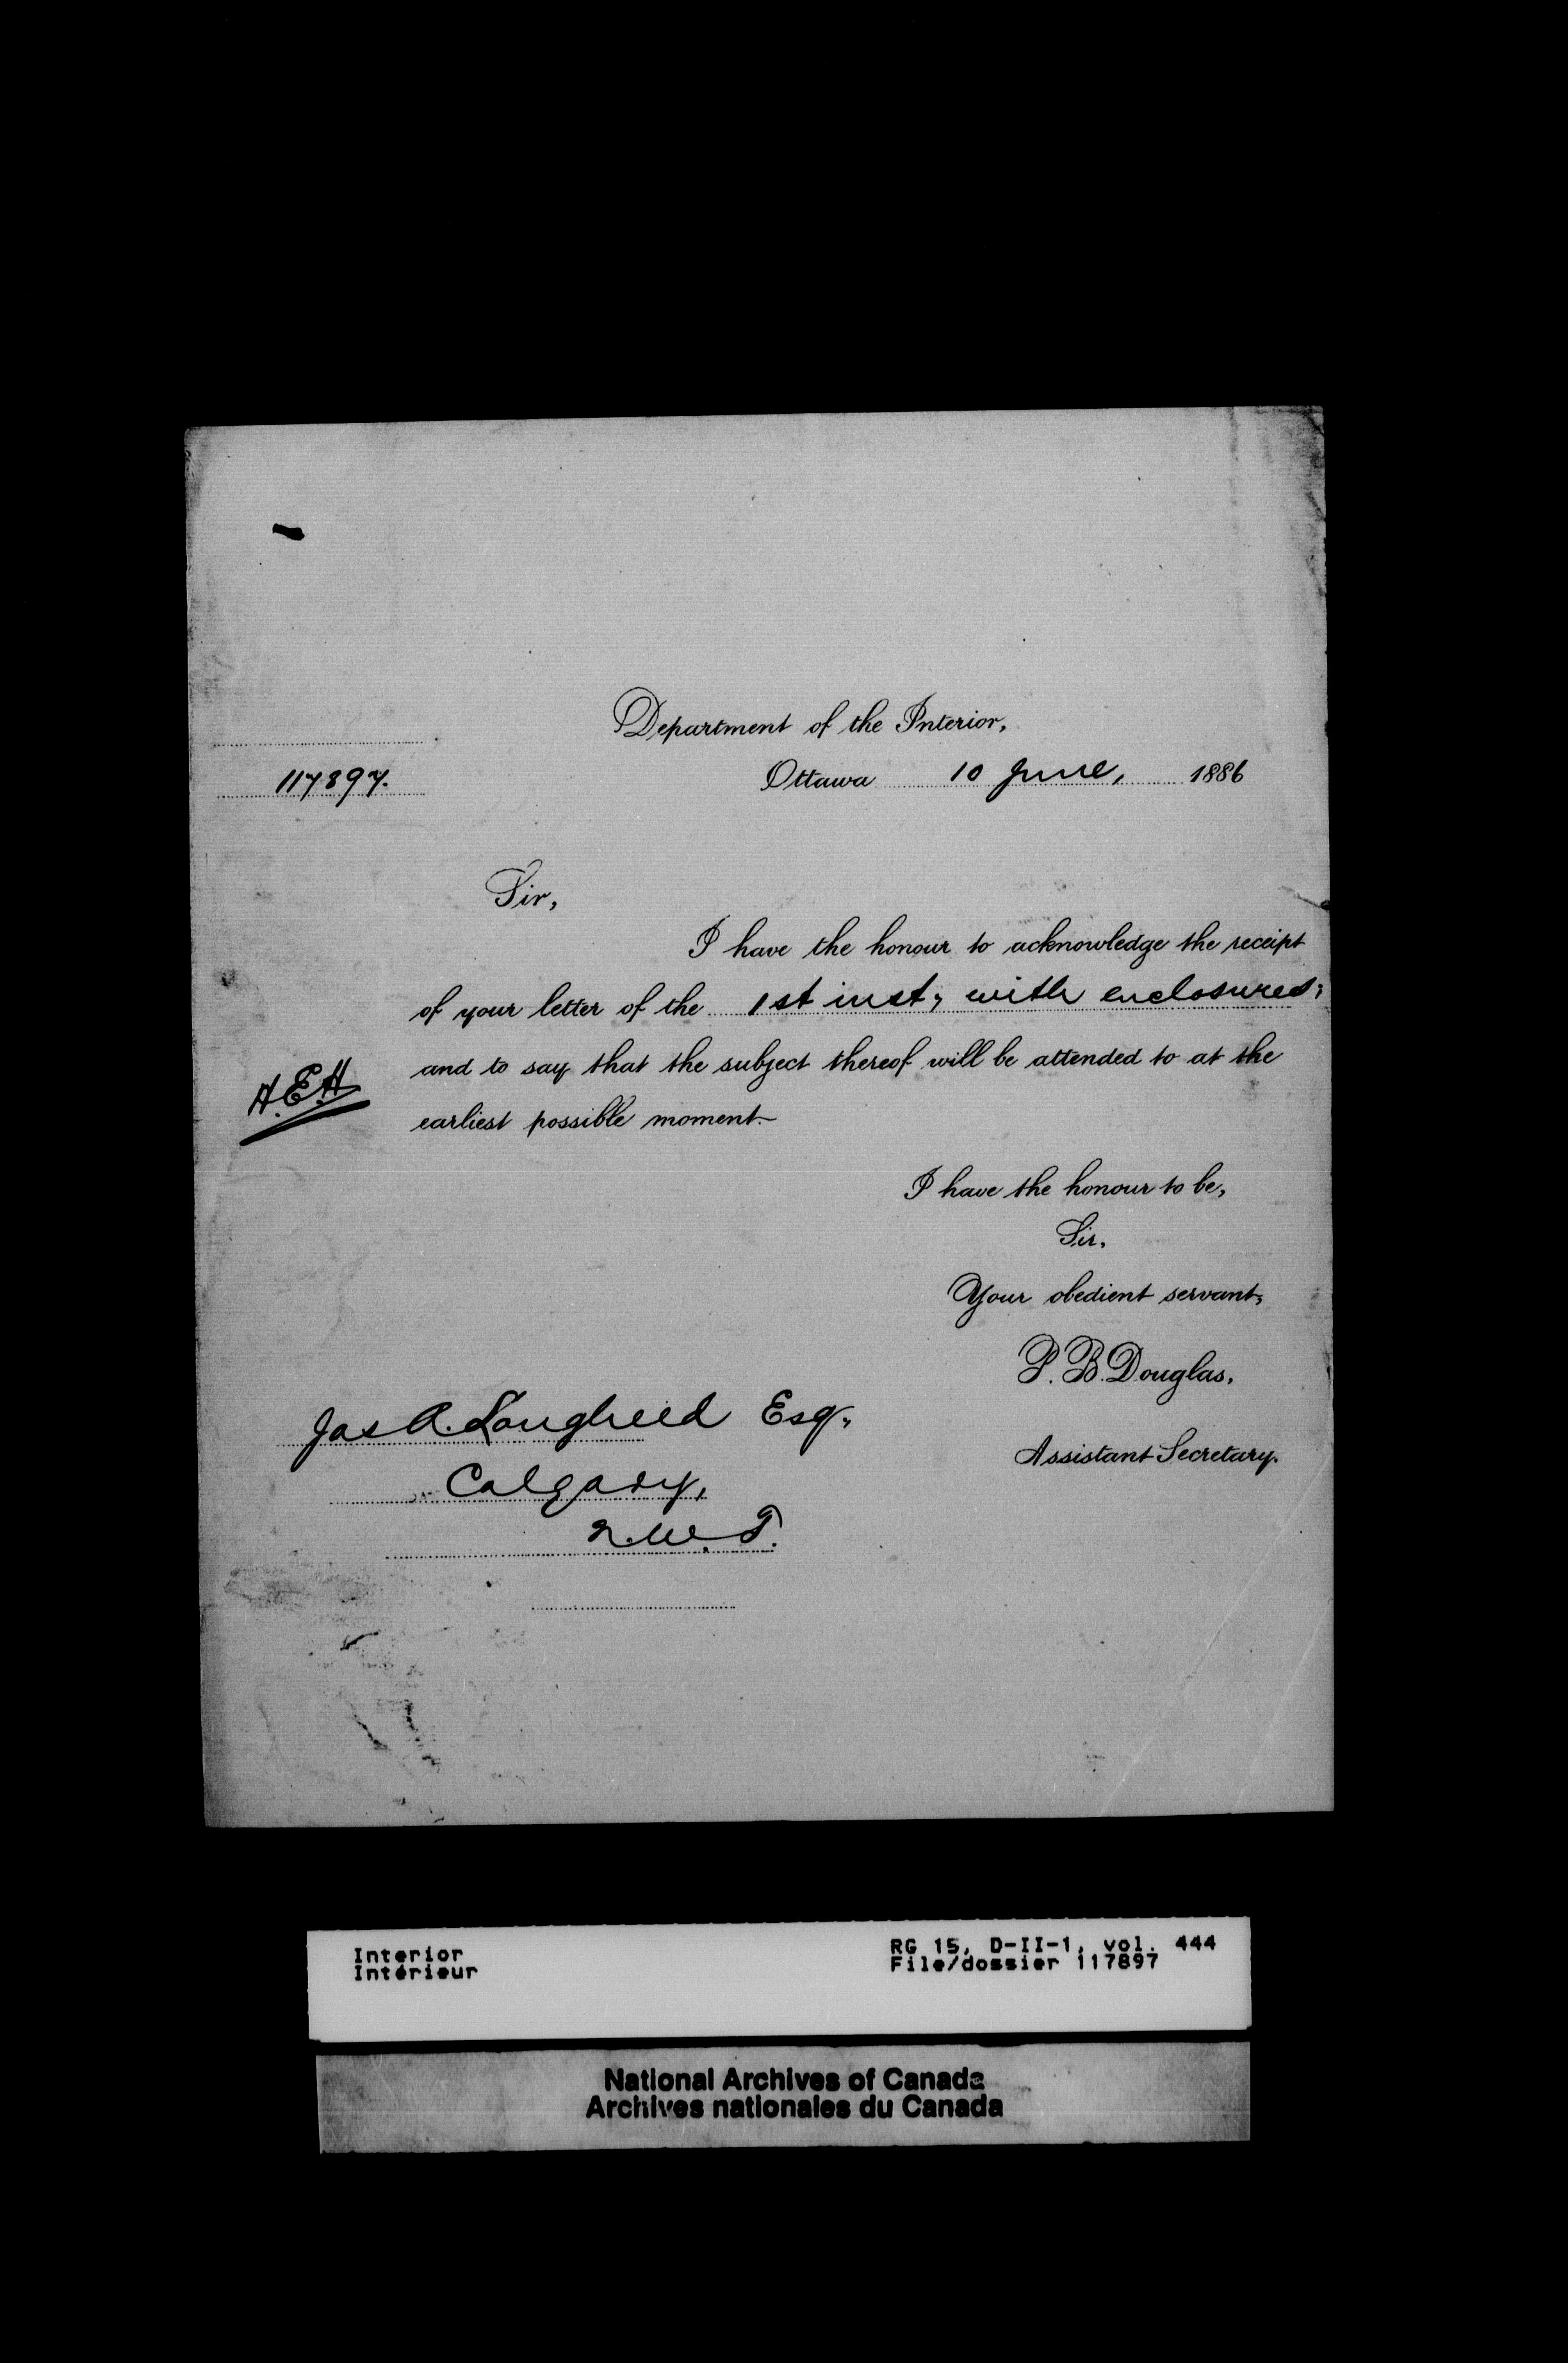 Department of the Interior,
117897.
Ottawa 10 June, 1886
Sir,
I have the honour to acknowledge the receipt
of your letter of the 1st inst, with enclosures;
and to say that the subject thereof will be attended to at the
A.E.H
earliest possible moment.
I have the honour to be,
Sir,
Your obedient servant,
P. B. Douglas,
Assistant Secretary.
Jas A. Lougheed Esq,
Calgary,
N.W.T.
Interior
Intérieur
RG 15, D-II-1, vol. 444
File/dossier 117897
National Archives of Canada
Archives nationales du Canada